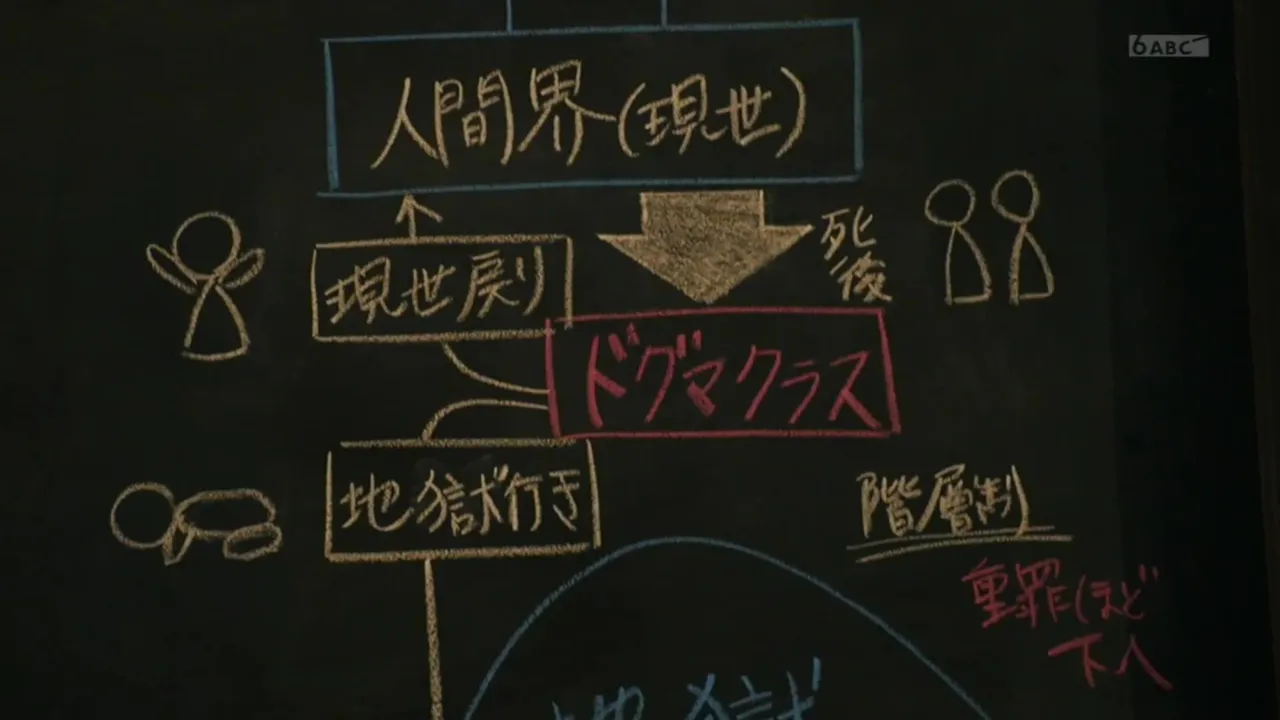 6 ABC
人間界(現世)
死後
現世戻り
ドグマクラス
地獄行き
階層制
重罪ほど
下へ
地獄